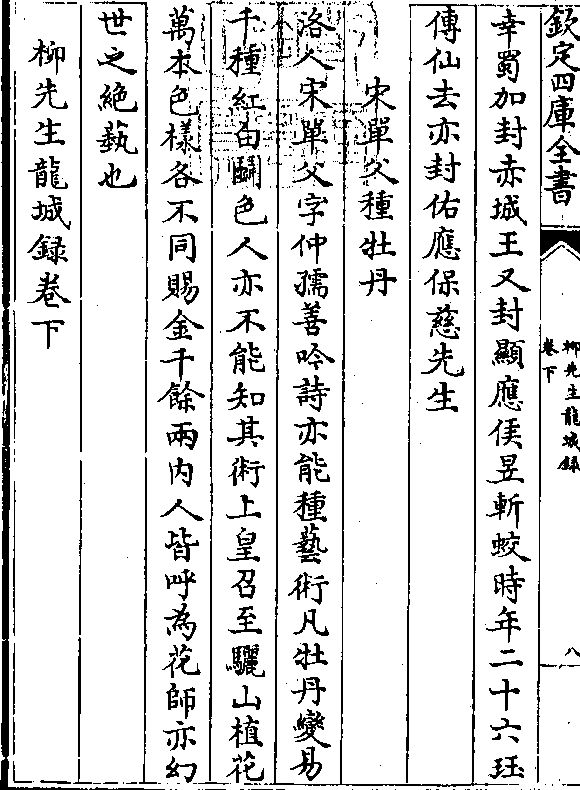 欽定四庫全書
柳先生龍城録
卷下
八
幸蜀加封赤城王又封顯應侯昱斬蛟時年二十六珏
傳仙去亦封佑應保慈先生
宋單父種牡丹
洛人宋單父字仲孺善吟詩亦能種藝術凡牡丹變易
千種紅白鬭色人亦不能知其術上皇召至驪山植花
萬本色樣各不同賜金千餘兩内人皆呼為花師亦幻
世之絶藝也
柳先生龍城録卷下